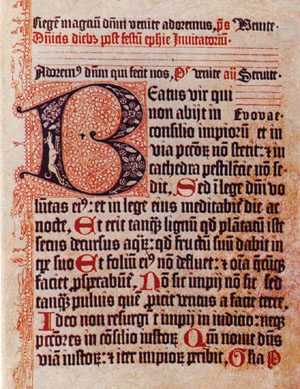 Regē magnū dn̄m venite adoremus, p̄s Venite.
Dn̄icis diebꝰ post festū ephīe Inuitatoriū.
Adoremꝰ dn̄m qui fecit nos, P̄s venite an̄ Seruite.
Beatus vir qui
non abijt in Evovae
consilio impioꝝ et in
via pccōꝝ nō stetit: et in
cathedra pestilēcie nō se-
dit, Sed ī lege dn̄i vo
lūtas eiꝰ: et in lege eius meditabit̄ die ac
nocte, Et erit tanqꝫ lignū qd̄ plātatū iste
secus decursus aqꝝ: qd̄ fructū suū dabit in
tꝑe suo Et foliū eiꝰ nō defluet: et oīa q̄cūqꝫ
faciet ꝓsperabūt̄, Nō sic impij nō sic: sed
tanqꝫ puluis quē ꝓicit ventus a facie terre,
Ideo non resurgūt impij in iudicio: neqꝫ
pctōres in cōsilio iustoꝝ Qm̄ nouit dn̄s
viā iustoꝝ: et iter impioꝝ ꝑibit,